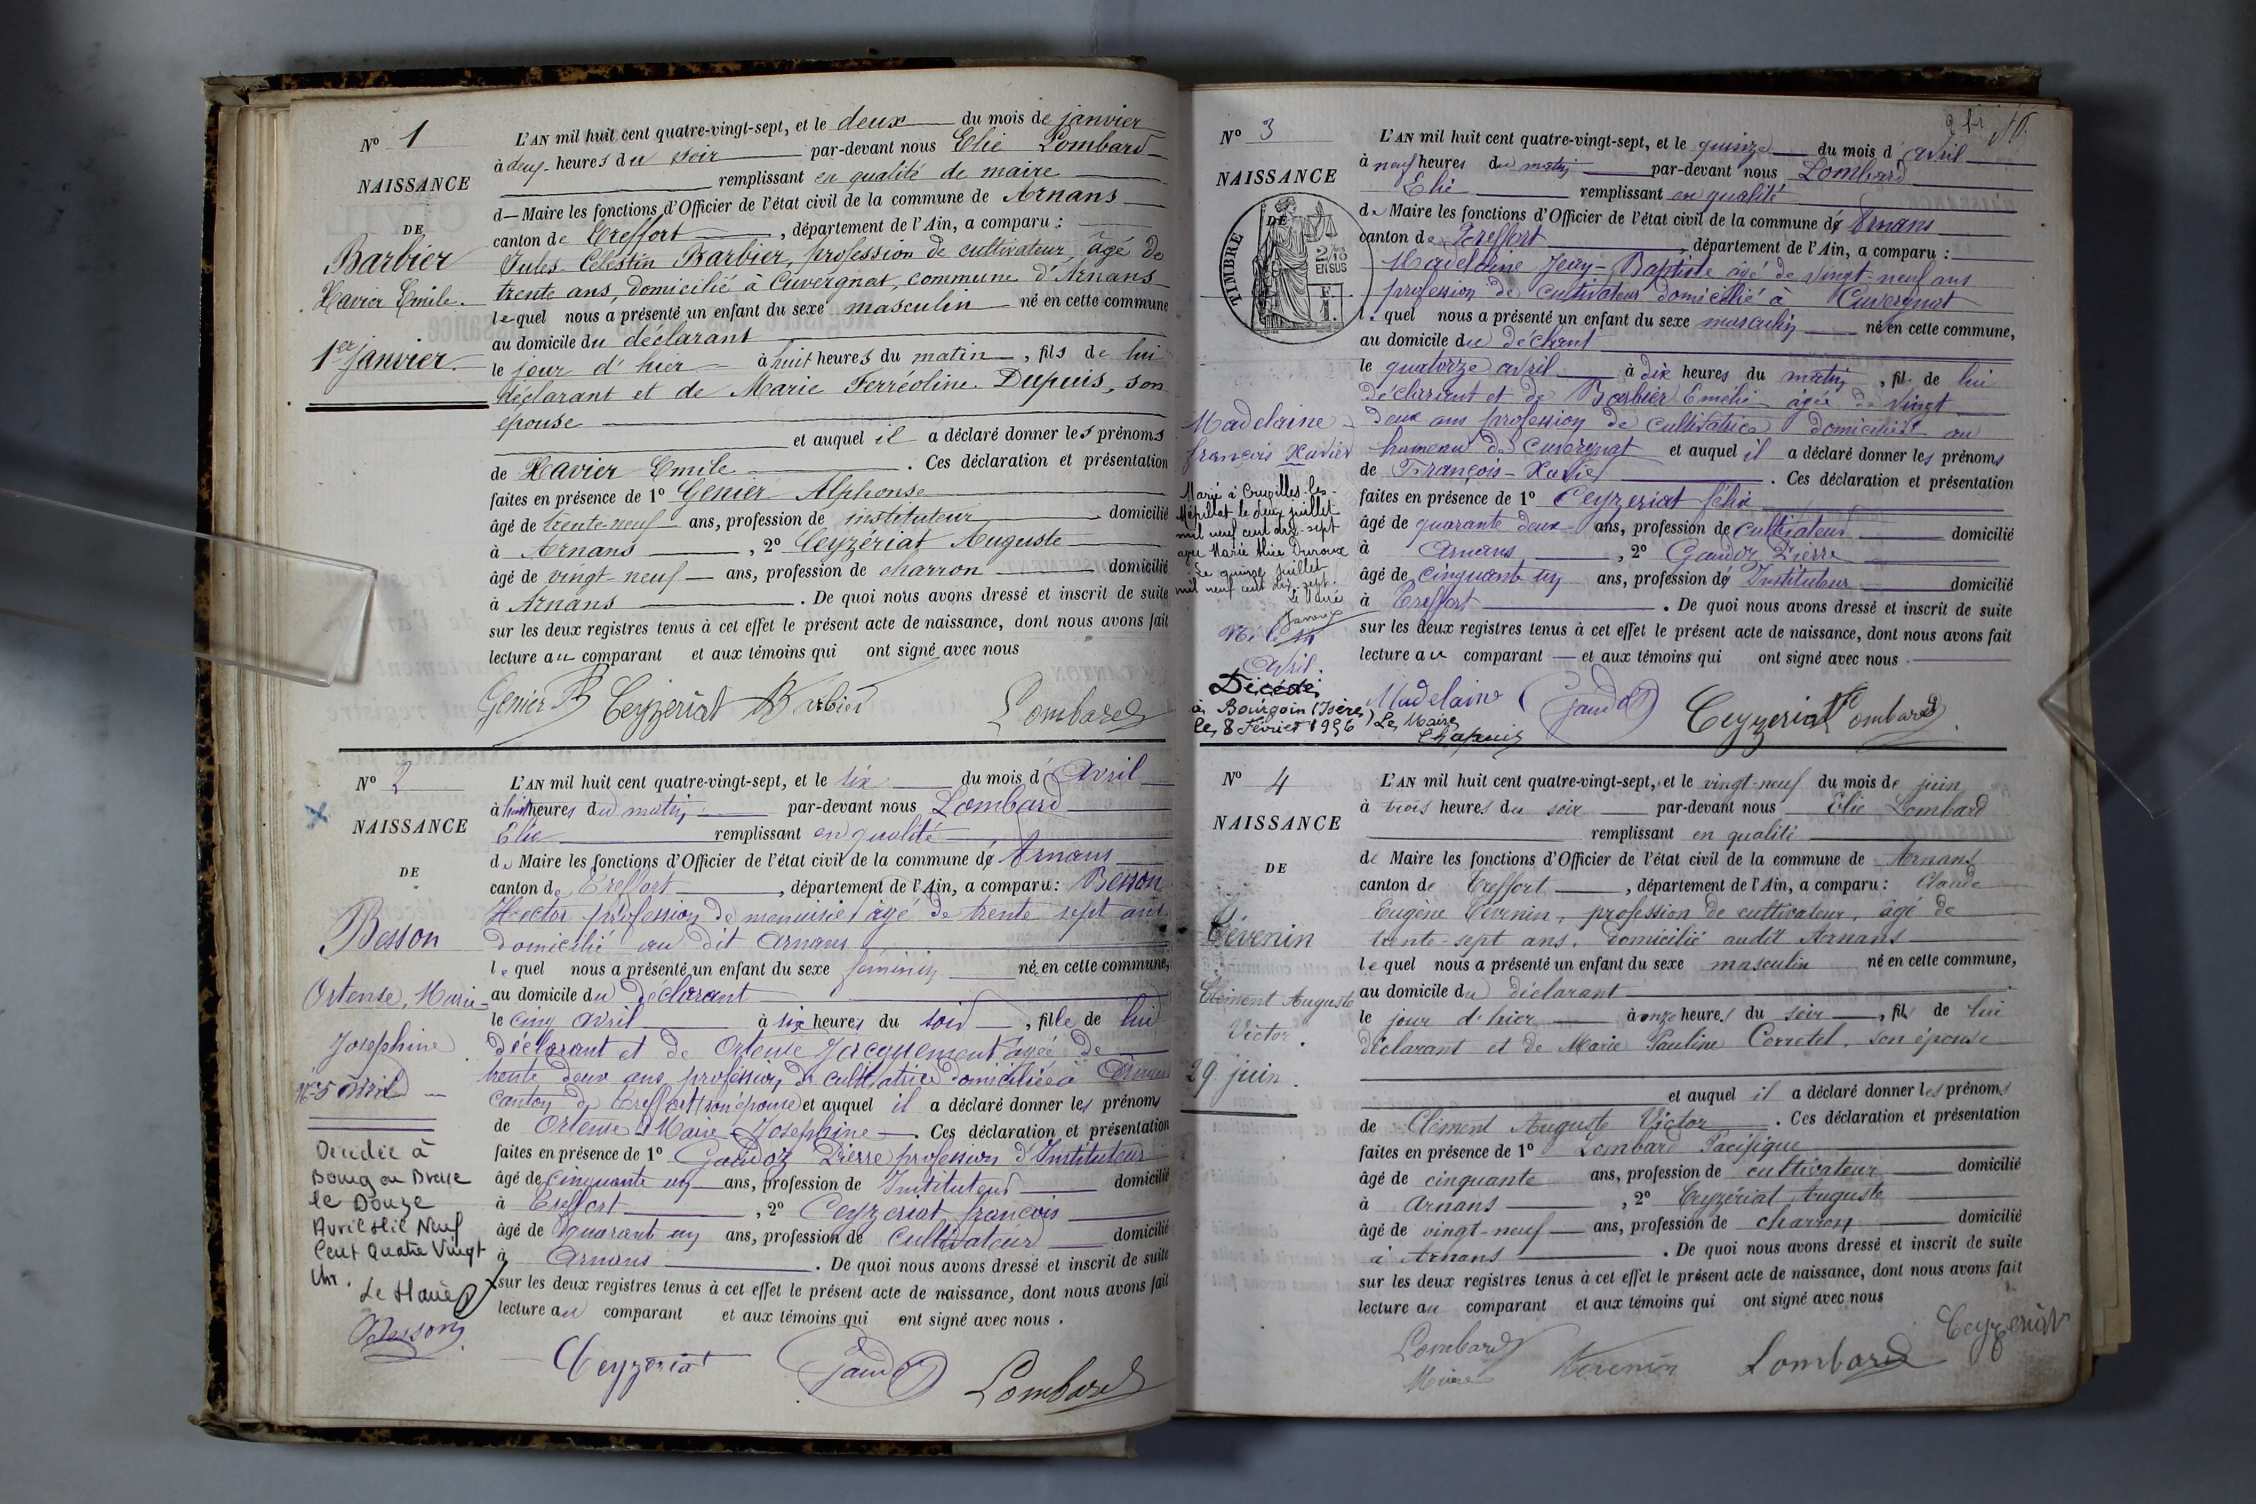 N° 1
NAISSANCE
DE
Barbier
Xavier Emile.
1er janvier.
L'AN mil huit cent quatre-vingt-sept, et le deux du mois de janvier
à deux heures du soir par-devant nous Elie Lombard
remplissant en qualité de maire
d Maire les fonctions d'Officier de l'état civil de la commune de Arnans
canton de Treffort, département de l'Ain, a comparu :
Jules Célestin Barbier, profession de cultivateur, âgé de
trente ans, domicilié à Cuvergnat, commune d'Arnans
lequel nous a présenté un enfant du sexe masculin né en cette commune
au domicile du déclarant
le jour d'hier à huit heures du matin, fils de lui
déclarant et de Marie Ferréoline Dupuis, son
épouse
et auquel il a déclaré donner les prénoms
de Xavier Emile. Ces déclaration et présentation
faites en présence de 1° Genier Alphonse
âgé de trente-neuf ans, profession de instituteur domicilié
à Arnans, 2° Ceyzériat Auguste
âgé de vingt-neuf ans, profession de charron domicilié
à Arnans. De quoi nous avons dressé et inscrit de suite
sur les deux registres tenus à cet effet le présent acte de naissance, dont nous avons fait
lecture au comparant et aux témoins qui ont signé avec nous
Genier Ceyzériat Barbier Lombard
N° 2
NAISSANCE
DE
Besson
Ortense, Marie
Josephine
5 avril
Décédée à
Bourg en Bresse
le Douze
Avril Mil Neuf
Cent Quatre Vingt
Un.
Le Maire
L'AN mil huit cent quatre-vingt-sept, et le six du mois d'Avril
à huit heures du matin par-devant nous Lombard
Elie remplissant en qualité
de Maire les fonctions d'Officier de l'état civil de la commune d'Arnans
canton de Treffort, département de l'Ain, a comparu : Besson
Hector profession de menuisier âgé de trente sept ans
domicilié au dit Arnans
lequel nous a présenté un enfant du sexe féminin né en cette commune,
au domicile du déclarant
le cinq avril à six heures du soir, fille de lui
déclarant et de Ortense Jacquement âgée de
trente deux ans profession de cultivatrice domiciliée à Arnans
canton de Treffort son épouse et auquel il a déclaré donner les prénoms
de Ortense Marie Josephine. Ces déclaration et présentation
faites en présence de 1° Gaudoz Pierre profession d'Instituteur
âgé de cinquante un ans, profession de Instituteur domicilié
à Treffort, 2° Ceyzeriat françois
âgé de quarant un ans, profession de cultivateur domicilié
à Arnans. De quoi nous avons dressé et inscrit de suite
sur les deux registres tenus à cet effet le présent acte de naissance, dont nous avons fait
lecture au comparant et aux témoins qui ont signé avec nous.
Besson Ceyzeriat Gaudoz Lombard
N° 3
NAISSANCE
DE
TIMBRE
2/10
EN SUS
Madelaine
françois Xavier
Marié à Cruzilles-les-
Mépillat le deux juillet
mil neuf cent dix-sept
avec Marie Alice Duroux
Le quinze juillet
mil neuf cent dix-sept.
Le Maire
avril.
Décédé
à Bourgoin (Isère)
le 8 Février 1956 Le Maire
Chapuis
L'AN mil huit cent quatre-vingt-sept, et le quinze du mois d'avril
à neuf heures du matin par-devant nous Lombard
Elie remplissant en qualité
de Maire les fonctions d'Officier de l'état civil de la commune d'Arnans
canton de Treffort, département de l'Ain, a comparu :
Madelaine Jean-Baptiste âgé de vingt-neuf ans
profession de cultivateur domicilié à Cuvergnat
lequel nous a présenté un enfant du sexe masculin né en cette commune,
au domicile du déclarant
le quatorze avril à dix heures du matin, fils de lui
déclarant et de Barbier Emélie âgée de vingt
deux ans profession de cultivatrice domiciliée au
hameau de Cuvergnat et auquel il a déclaré donner les prénoms
de François-Xavier. Ces déclaration et présentation
faites en présence de 1° Ceyzeriat félix
âgé de quarante deux ans, profession de cultivateur domicilié
à Arnans, 2° Gaudoz Pierre
âgé de cinquante un ans, profession d'Instituteur domicilié
à Treffort. De quoi nous avons dressé et inscrit de suite
sur les deux registres tenus à cet effet le présent acte de naissance, dont nous avons fait
lecture au comparant et aux témoins qui ont signé avec nous
Madelaine Gaudoz Ceyzeriat Lombard
N° 4
NAISSANCE
DE
Févenin
Clément Auguste
Victor.
29 juin.
L'AN mil huit cent quatre-vingt-sept, et le vingt-neuf du mois de juin
à trois heures du soir par-devant nous Elie Lombard
remplissant en qualité
de Maire les fonctions d'Officier de l'état civil de la commune de Arnans
canton de Treffort, département de l'Ain, a comparu : Claude
Eugène Févenin, profession de cultivateur, âgé de
trente-sept ans, domicilié audit Arnans
lequel nous a présenté un enfant du sexe masculin né en cette commune,
au domicile du déclarant
le jour d'hier à onze heures du soir, fils de lui
déclarant et de Marie Pauline Corretel, son épouse
et auquel il a déclaré donner les prénoms
de Clément Auguste Victor. Ces déclaration et présentation
faites en présence de 1° Lombard Pacifique
âgé de cinquante ans, profession de cultivateur domicilié
à Arnans, 2° Ceyzériat Auguste
âgé de vingt-neuf ans, profession de charron domicilié
à Arnans. De quoi nous avons dressé et inscrit de suite
sur les deux registres tenus à cet effet le présent acte de naissance, dont nous avons fait
lecture au comparant et aux témoins qui ont signé avec nous
Lombard Lombard Ceyzeriat
Maire